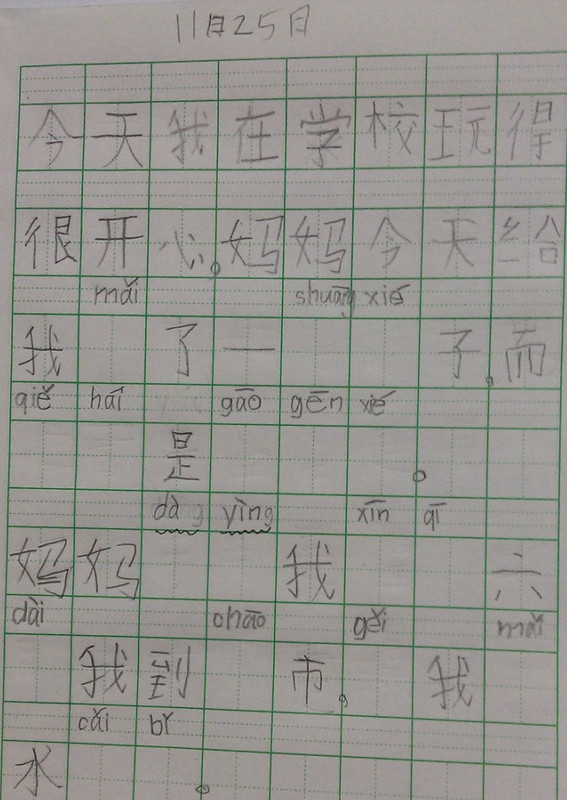 11日25日
今天我在学校玩得
很开心。妈妈今天给
mǎi shuāng xié
我了一子。而
qiě hái gāo gēn xié
是。
dà yìng xīn qī
妈妈我六
dài chāo gěi mǎi
我到市。我
cǎi bǐ
水。